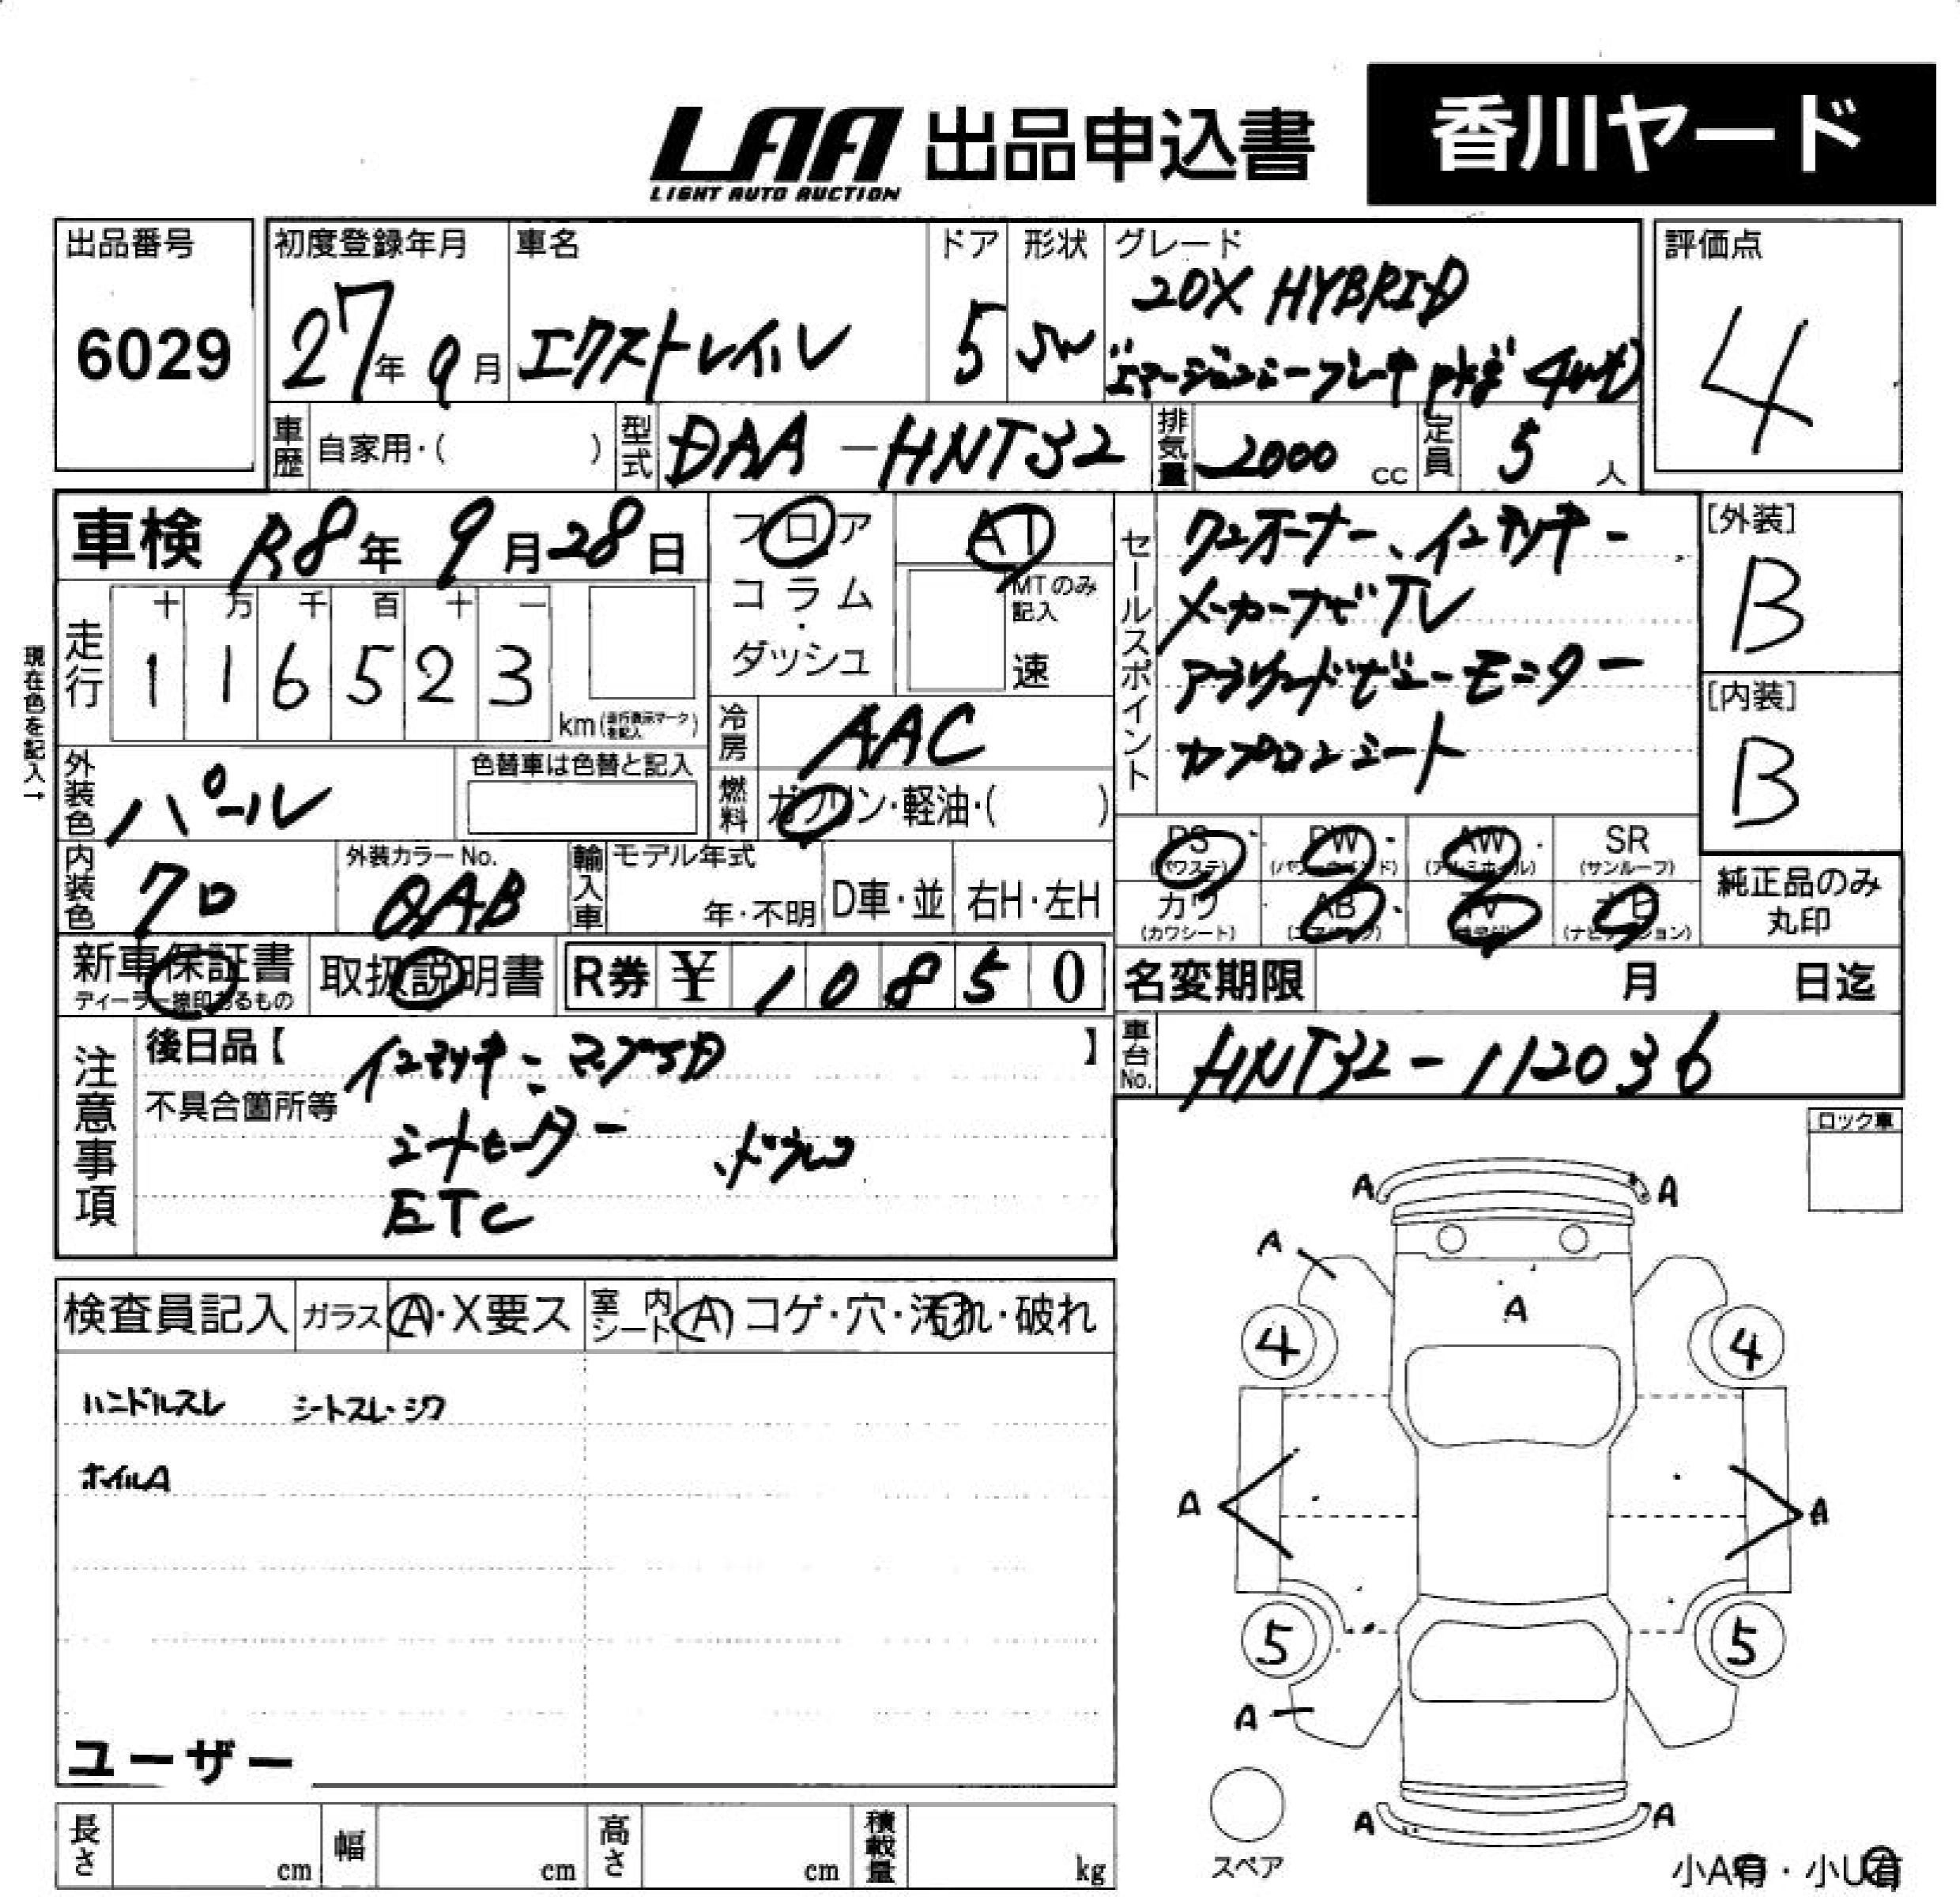 LAA 出品申込書 香川ヤード
LIGHT AUTO AUCTION
出品番号 初度登録年月 車名 ドア 形状 グレード 評価点
20X HYBRID
6029 27年 9月 エクストレイル 5 SW "エマージェンシーブレーキ pkg" 4WD 4
車歴 自家用・( ) 型式 DAA-HNT32 排気量 2000 cc 定員 5 人
車検 R8年 9月28日 フロア AT セールスポイント ワンオーナー、インテリキー [外装]
コラム・ MTのみ記入 メーカーナビTV B
ダッシュ 速 アラウンドビューモニター [内装]
カプロンシート B
現在色を記入→
走行 十 万 千 百 十 一
1 1 6 5 2 3 km(走行表示マークを記入)
冷房 AAC
外装色 パール 色替車は色替と記入 燃料 ガソリン・軽油・( )
PS PW AW SR
(パワステ) (パワーウインド) (アルミホイール) (サンルーフ)
内装色 クロ 外装カラーNo. QAB 輸入車 モデル年式 年・不明 D車・並 右H・左H
カワ AB TV ナビ 純正品のみ
(カワシート) (エアバッグ) (ナビゲーション) 丸印
新車保証書 取扱説明書 R券 ¥ 1 0 8 5 0 名変期限 月 日迄
ディーラー捺印あるもの
注意事項 後日品【 】 車台No. HNT32-112036
不具合箇所等
シートヒーター ドラレコ
ETC
ロック車
検査員記入 ガラス A・X要ス 室内シート A コゲ・穴・汚れ・破れ
ハンドルスレ シートスレ・シワ
ホイルA
ユーザー
A A
A
A
4 4
A A
5 5
A
A A
スペア
小A有・小U有
長さ cm 幅 cm 高さ cm 積載量 kg